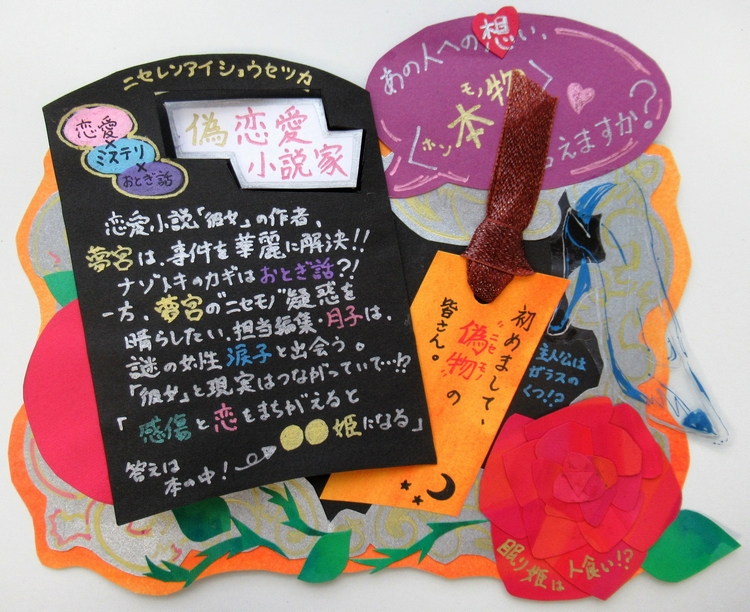 ニセレンアイショウセツカ
恋愛
×
ミステリ
×
おとぎ話
偽恋愛
小説家
恋愛小説「彼女」の作者、
夢宮は、事件を華麗に解決!!
ナゾトキのカギはおとぎ話?!
一方、夢宮の"ニセモノ"疑惑を
晴らしたい、担当編集・月子は、
謎の女性 涙子と出会う。
「彼女」と現実はつながっていて…!?
「感傷と恋をまちがえると
●●姫になる」
答えは
本の中!
あの人への想い、
〈本物〉
ホン モノ
えますか?
初めまして、
"偽物"の
ニセ モノ
皆さん。
主人公は
ガラスの
くつ!?
眠り姫は人食い!?